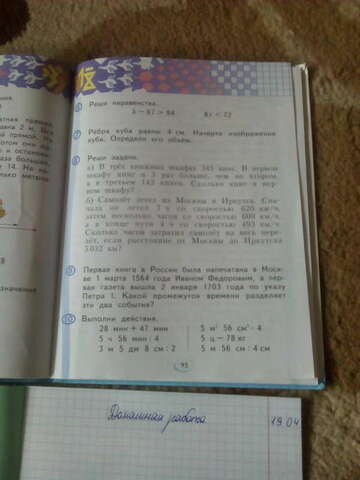 Реши неравенства.
8z < 72
7 Ребро куба равно 4 см. Начерти изображение
куба. Определи его объём.
8 Реши задачи.
а) В трёх книжных шкафах 345 книг. В первом
шкафу книг в 3 раза больше, чем во втором,
а в третьем 142 книги. Сколько книг в пер-
вом шкафу?
б) Самолёт летел из Москвы в Иркутск. Сна-
чала он летел 3 ч со скоростью 620 км/ч,
затем несколько часов со скоростью 600 км/ч,
а в конце пути 4 ч со скоростью 493 км/ч.
Сколько часов затратил самолёт на весь пере-
лёт, если расстояние от Москвы до Иркутска
5 032 км?
9 Первая книга в России была напечатана в Моск-
ве 1 марта 1564 года Иваном Федоровым, а пер-
вая газета вышла 2 января 1703 года по указу
Петра I. Какой промежуток времени разделяет
эти два события?
10 Выполни действия.
28 мин + 47 мин 5 м² 56 см² · 4
5 ч 56 мин · 4 5 ц − 78 кг
3 м 5 дм 8 см : 2 5 м 56 см : 4 см
95
Домашняя работа 19.04